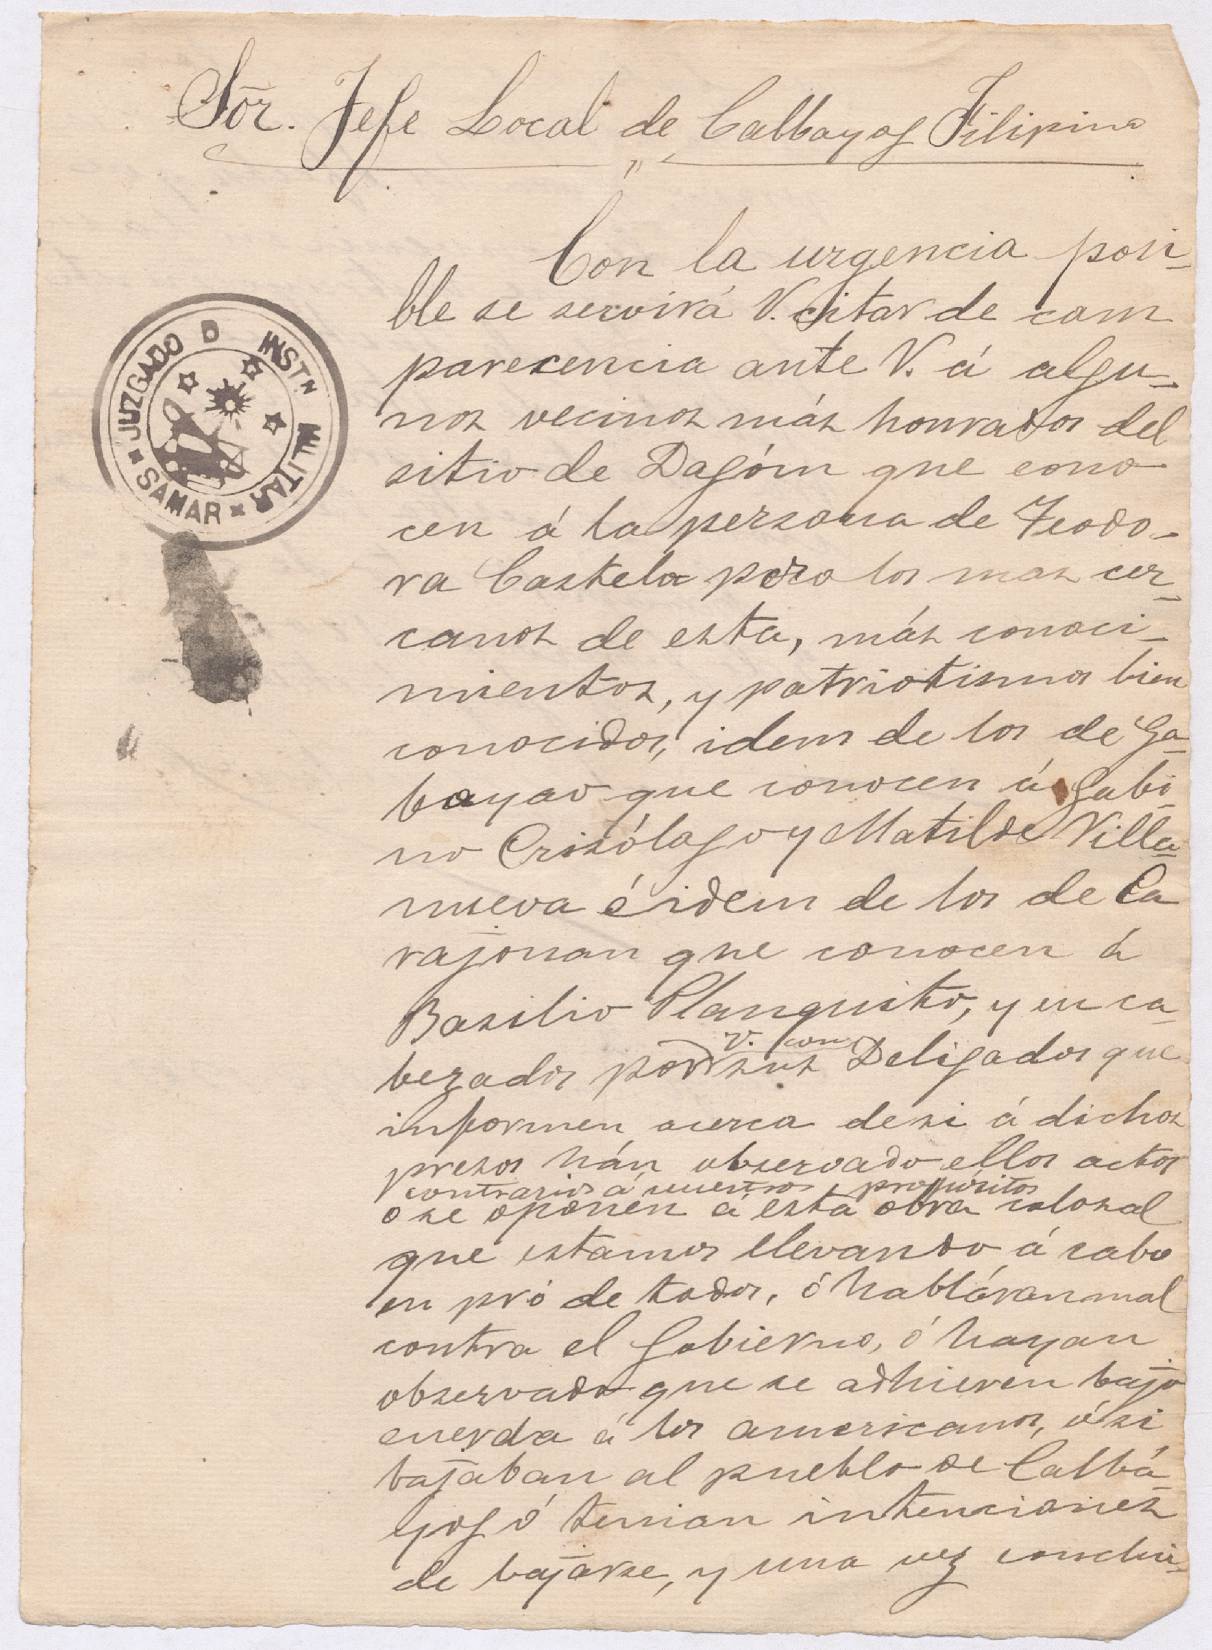 Sõr. Jefe Local de Calbayog Filipino
Con la urgencia posi-
ble se servirá V. citar de com
parecencia ante V. á algu-
nos vecinos más honrados del
sitio de Dagóm que cono
cen á la persona de Teodo-
ra Castelo pero los mas cer-
canos de esta, más conoci-
mientos, y patriotismos bien
conocidos, idem de los de Ga-
bayao que conocen á Gabi-
no Crisólogo y Matilde Villa-
nueva é idem de los de Ca
rajonan que conocen á
Basilio Planquito, y en ca-
V. con
bezados por sus Deligados que
informen acerca de si á dichos
presos hán observado ellos actos
contrarios á nuestros propósitos
o se oponen á esta obra colosal
que estamos llevando á cabo
en pró de todos, ó habláran mal
contra el Gobierno, ó hayan
observado que se adhieren bajo
cuerda á los americanos, ó si
bajaban al pueblo de Calbá-
yog ó tenian intenciones
de bajarse, y una vez conclui-
JUZGADO D INSTN MILITAR
SAMAR